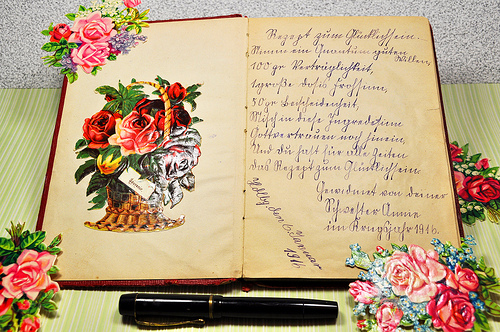 Rezept zum Glücklichsein.
Nimm ein Quantum guten
Willen,
100 gr. Verträglichkeit,
1 große Dosis Frohsinn,
50 gr Bescheidenheit,
Misch in diese Ingredenzien
Gottvertrauen noch hinein,
Und du hast für alle Zeiten
Das Rezept zum Glücklichsein.
Gewidmet von deiner
Schwester Anna
im Kriegsjahr 1916.
den 6. Januar
1916.